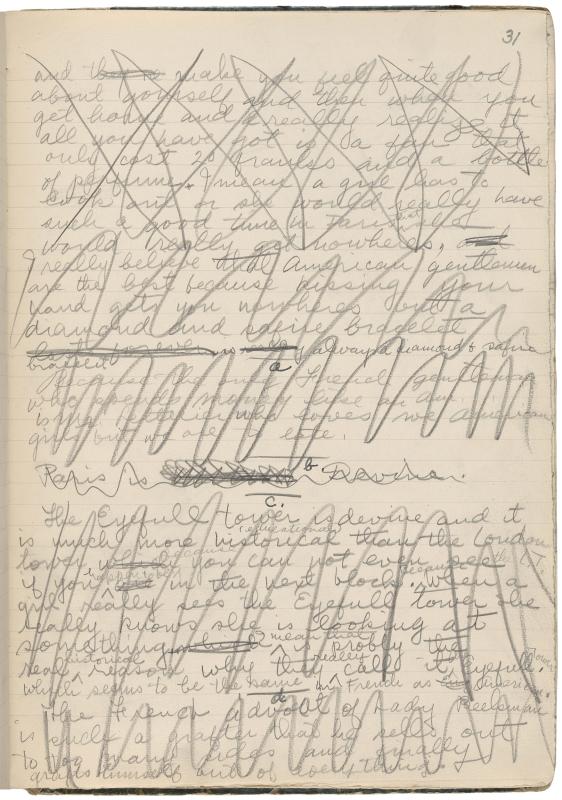 31
and make you feel quite good
about yourself and then when you
get home and really realize it
all you have got is a fan that
only cost 20 franks and a bottle
of perfume. I mean a girl has to
look out or she would really have
such a good time in Paris she
would really get nowheres,
really believe that American gentlemen
are the best because kissing your
hand gets you nowheres but a
diamond and safire bracelet
last forever is always a diamond & safire
bracelet
a
Because the only French gentleman
who spends money like an Am.
is Mr. who loves we American
girls but we are to late.
Paris is b Devine.
c.
The Eyefull tower is devine and it
educational
is much more historical than the London
tower because you can not even see the L.T.
if you happen to be in the next block. because When a
girl really sees the Eyefull tower she
really knows she is looking at
something. I mean that is probly the
real historical reason why they really call it Eyefull Tower
which seems to be the same in French as American.
d
The French advocat of Lady Beekman
is such a grafter that he sells out
to too many sides and finally
grafts himself out of everything.